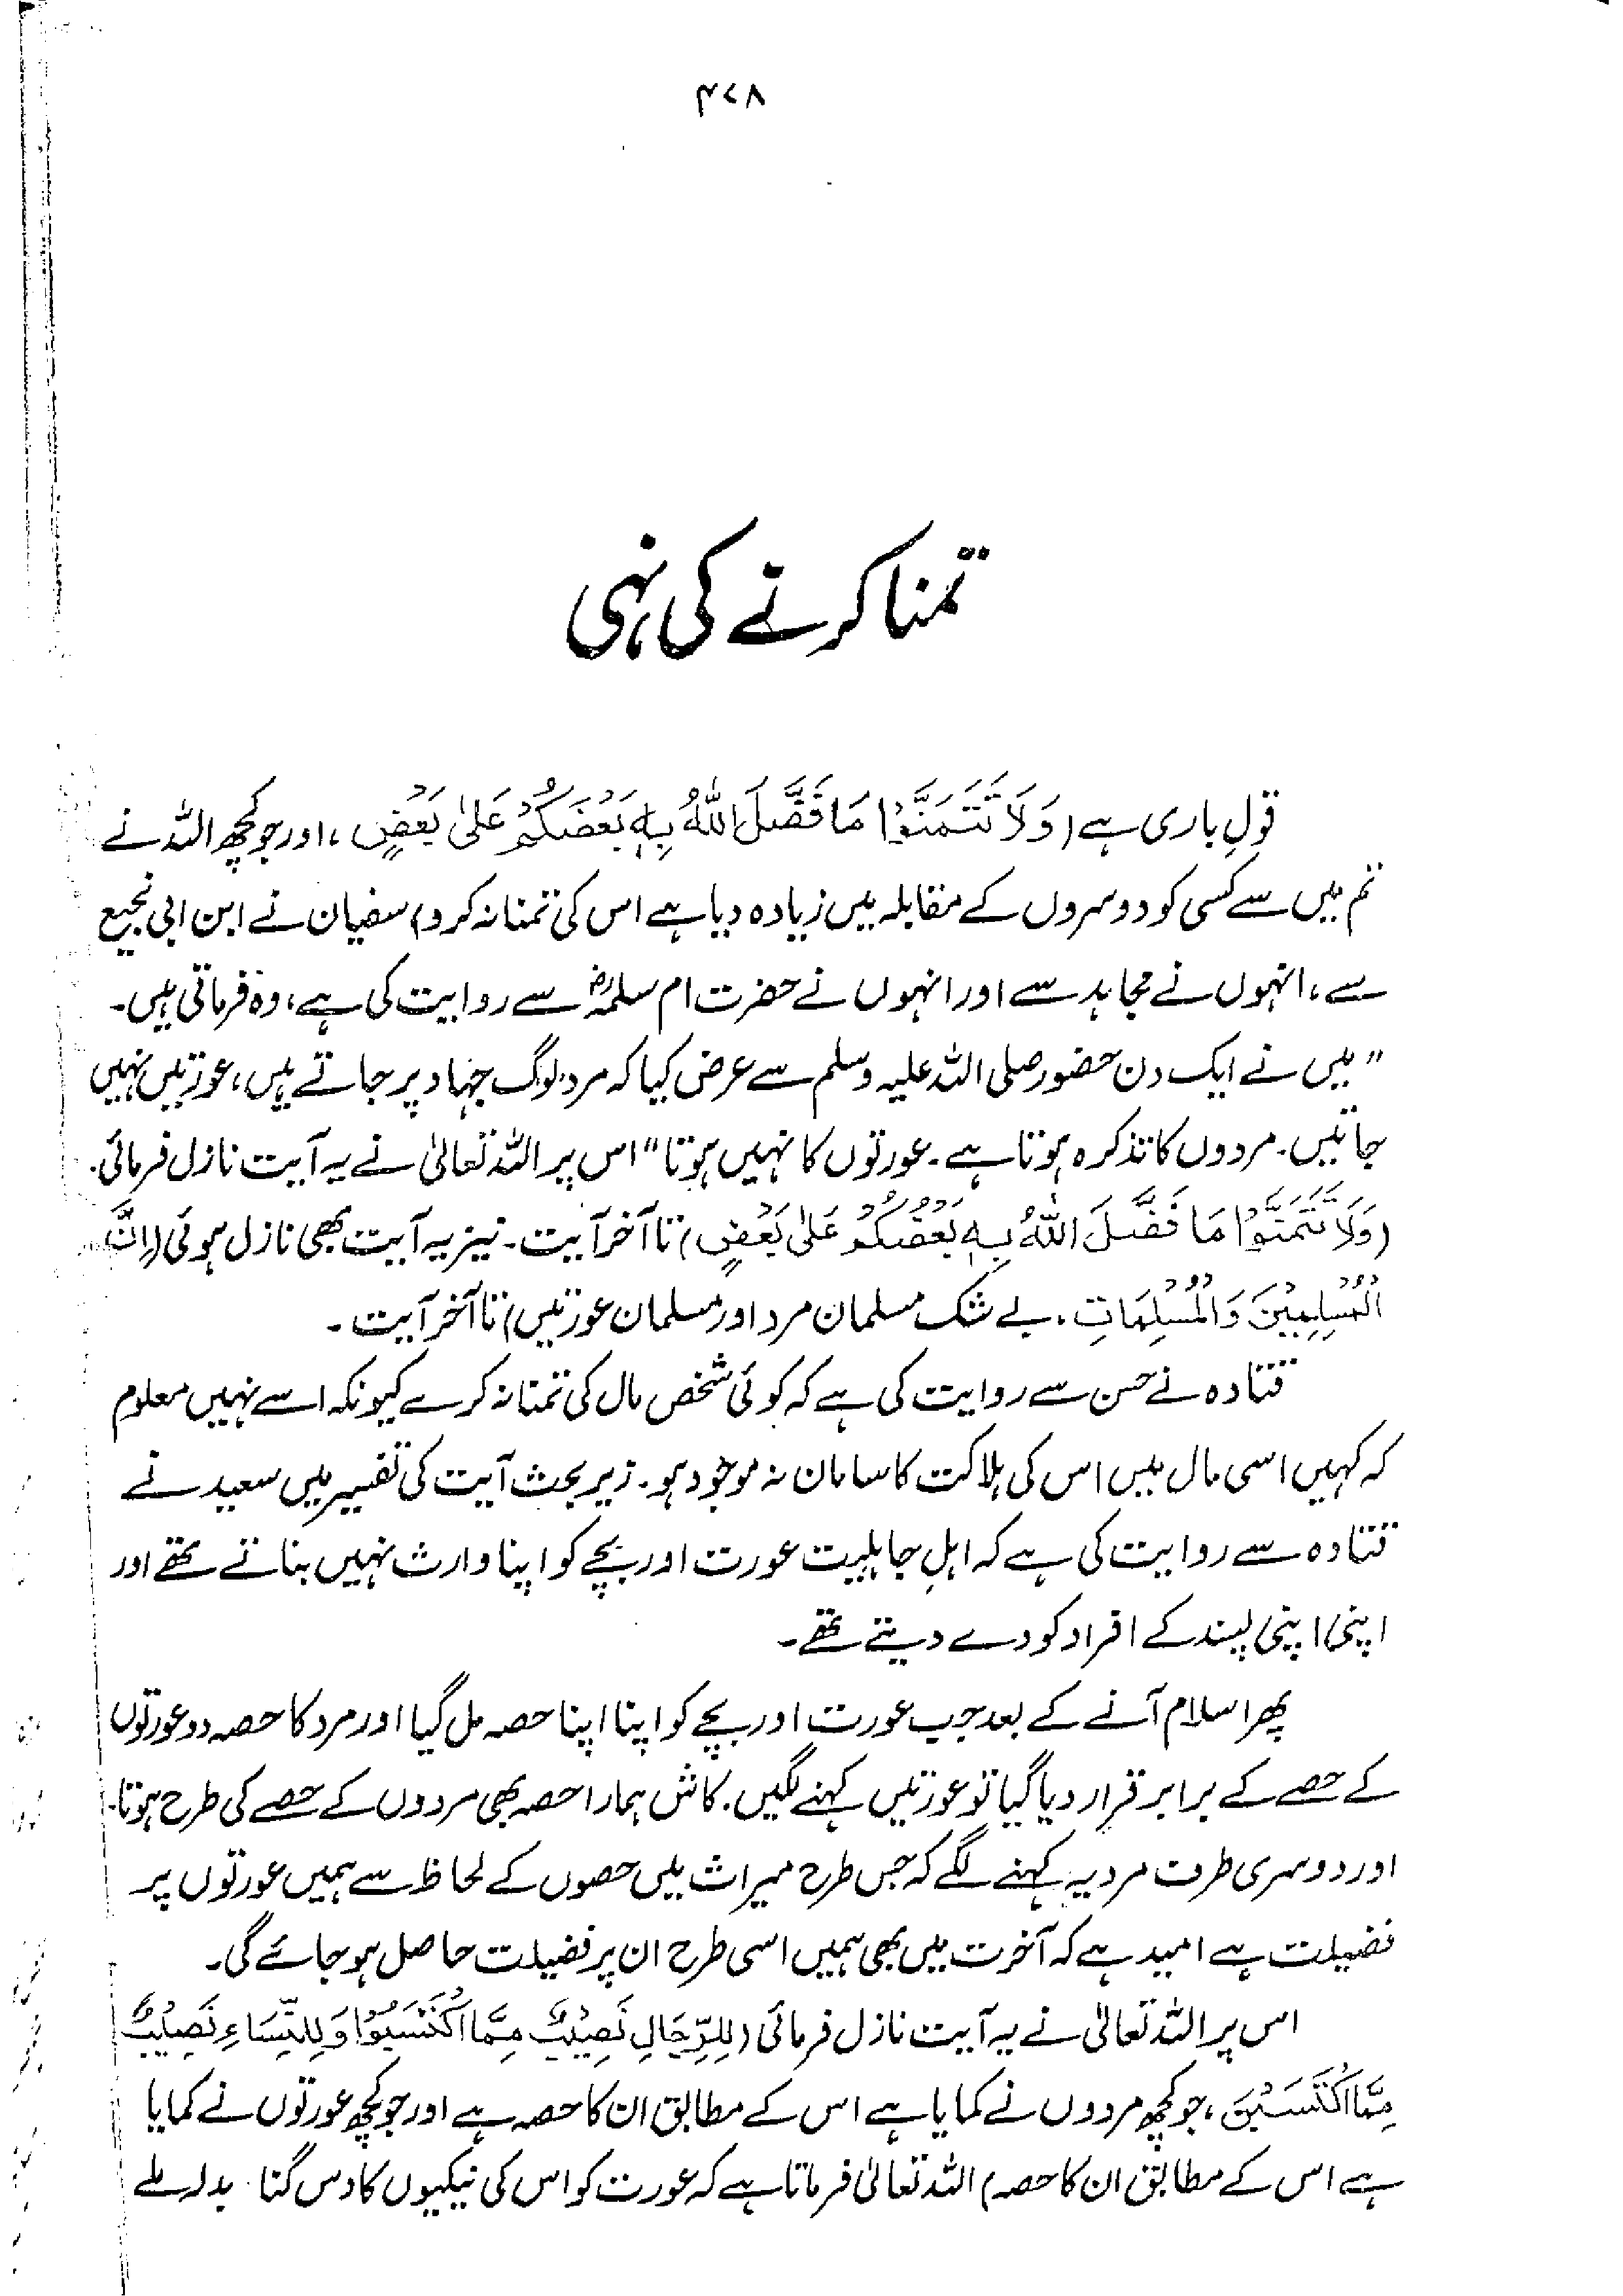 ۴۷۸
تمنا کرنے کی نہی
قولِ باری ہے (وَلَا تَتَمَنَّوْا مَا فَضَّلَ اللهُ بِهٖ بَعْضَكُمْ عَلىٰ بَعْضٍ، اور جو کچھ اللہ نے
تم میں سے کسی کو دوسروں کے مقابلہ میں زیادہ دیا ہے اس کی تمنا نہ کرو) سفیان نے ابن ابی نجیع
سے، انہوں نے مجاہد سے اور انہوں نے حضرت ام سلمہؓ سے روایت کی ہے، وہ فرماتی ہیں۔
"میں نے ایک دن حضور صلی اللہ علیہ وسلم سے عرض کیا کہ مرد لوگ جہاد پر جاتے ہیں، عورتیں نہیں
جاتیں۔ مردوں کا تذکرہ ہوتا ہے۔ عورتوں کا نہیں ہوتا" اس پر اللہ تعالیٰ نے یہ آیت نازل فرمائی۔
(وَلَا تَتَمَنَّوْا مَا فَضَّلَ اللهُ بِهٖ بَعْضَكُمْ عَلىٰ بَعْضٍ) تا آخر آیت۔ نیز یہ آیت بھی نازل ہوئی (اِنَّ
الْمُسْلِمِيْنَ وَالْمُسْلِمَاتِ، بے شک مسلمان مرد اور مسلمان عورتیں) تا آخر آیت۔
قتادہ نے حسن سے روایت کی ہے کہ کوئی شخص مال کی تمنا نہ کرے کیونکہ اسے نہیں معلوم
کہ کہیں اسی مال میں اس کی ہلاکت کا سامان نہ موجود ہو۔ زیر بحث آیت کی تفسیر میں سعید نے
قتادہ سے روایت کی ہے کہ اہلِ جاہلیت عورت اور بچے کو اپنا وارث نہیں بناتے تھے اور
اپنی اپنی پسند کے افراد کو دے دیتے تھے۔
پھر اسلام آنے کے بعد جب عورت اور بچے کو اپنا اپنا حصہ مل گیا اور مرد کا حصہ دو عورتوں
کے حصے کے برابر قرار دیا گیا تو عورتیں کہنے لگیں۔ کاش ہمارا حصہ بھی مردوں کے حصے کی طرح ہوتا۔
اور دوسری طرف مرد یہ کہنے لگے کہ جس طرح میراث میں حصوں کے لحاظ سے ہمیں عورتوں پر
فضیلت ہے امید ہے کہ آخرت میں بھی ہمیں اسی طرح ان پر فضیلت حاصل ہو جائے گی۔
اس پر اللہ تعالیٰ نے یہ آیت نازل فرمائی (لِلرِّجَالِ نَصِيْبٌ مِمَّا اكْتَسَبُوْا وَلِلنِّسَاءِ نَصِيْبٌ
مِمَّا اكْتَسَبْنَ، جو کچھ مردوں نے کمایا ہے اس کے مطابق ان کا حصہ ہے اور جو کچھ عورتوں نے کمایا
ہے اس کے مطابق ان کا حصہ) اللہ تعالیٰ فرماتا ہے کہ عورت کو اس کی نیکیوں کا دس گنا بدلہ ملے